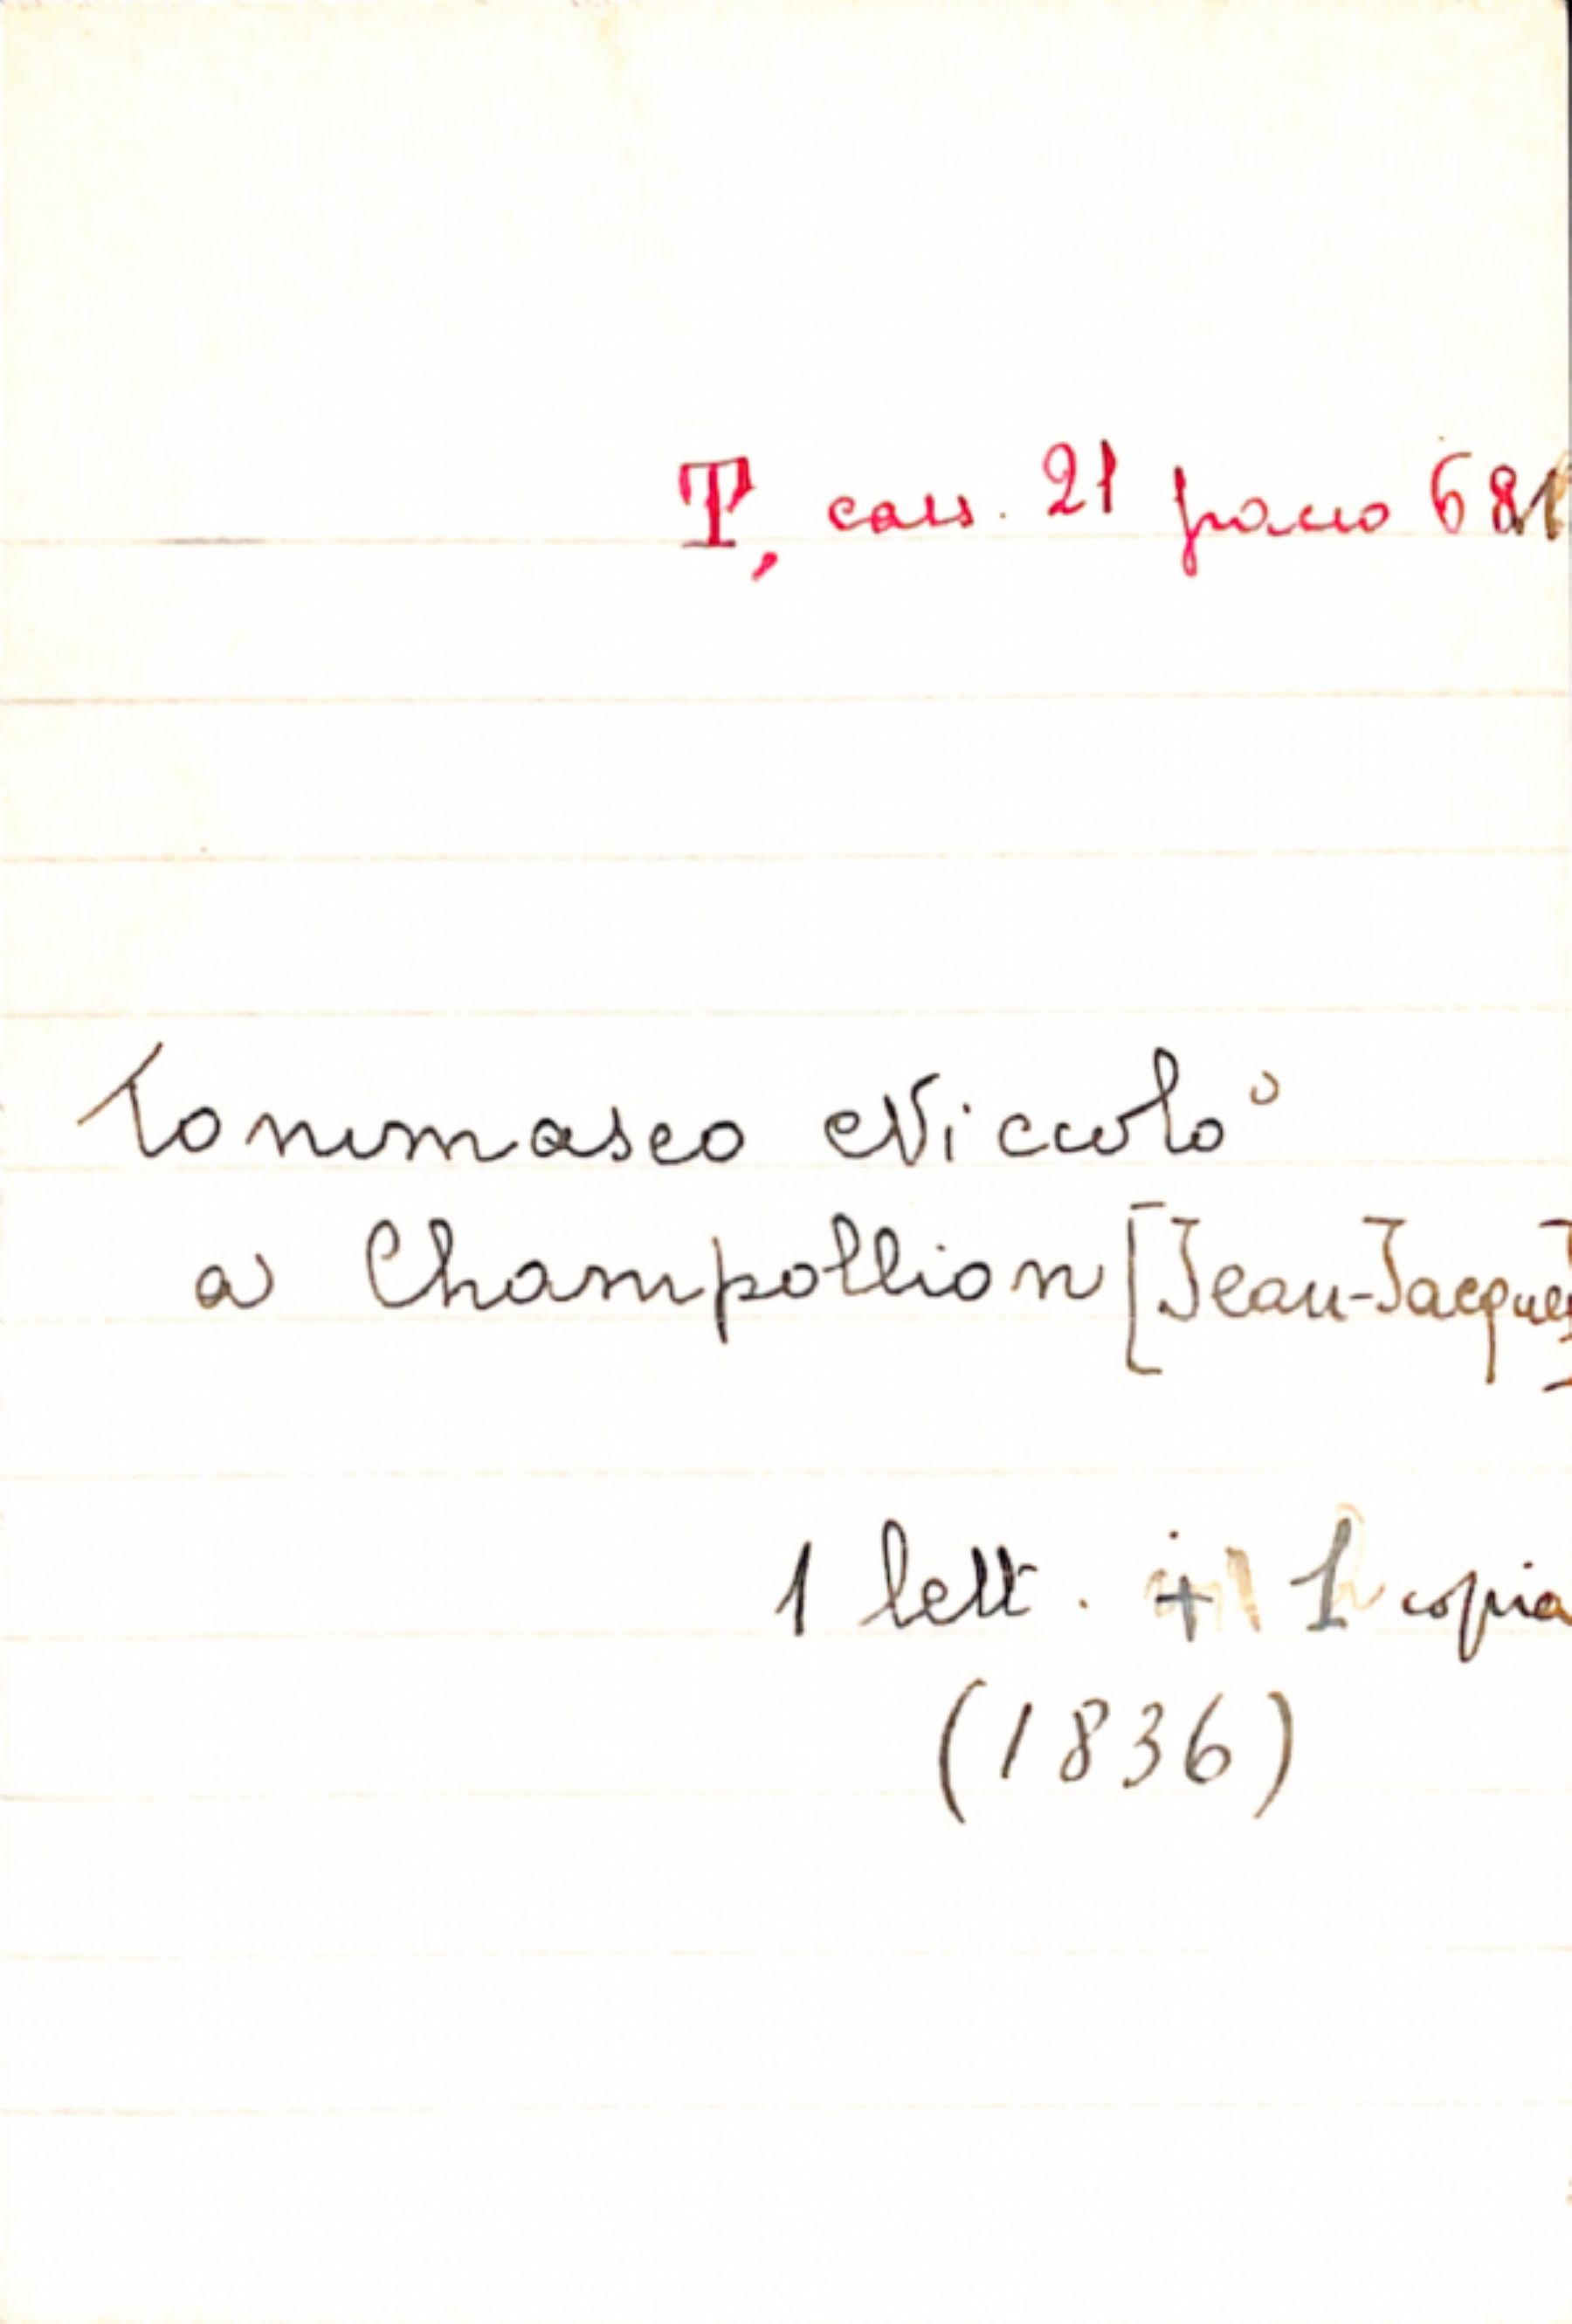 T, cass. 21 pacco 681
Tommaseo Niccolò
a Champollion [Jean-Jacques]
1 lett. + 1 copia
(1836)